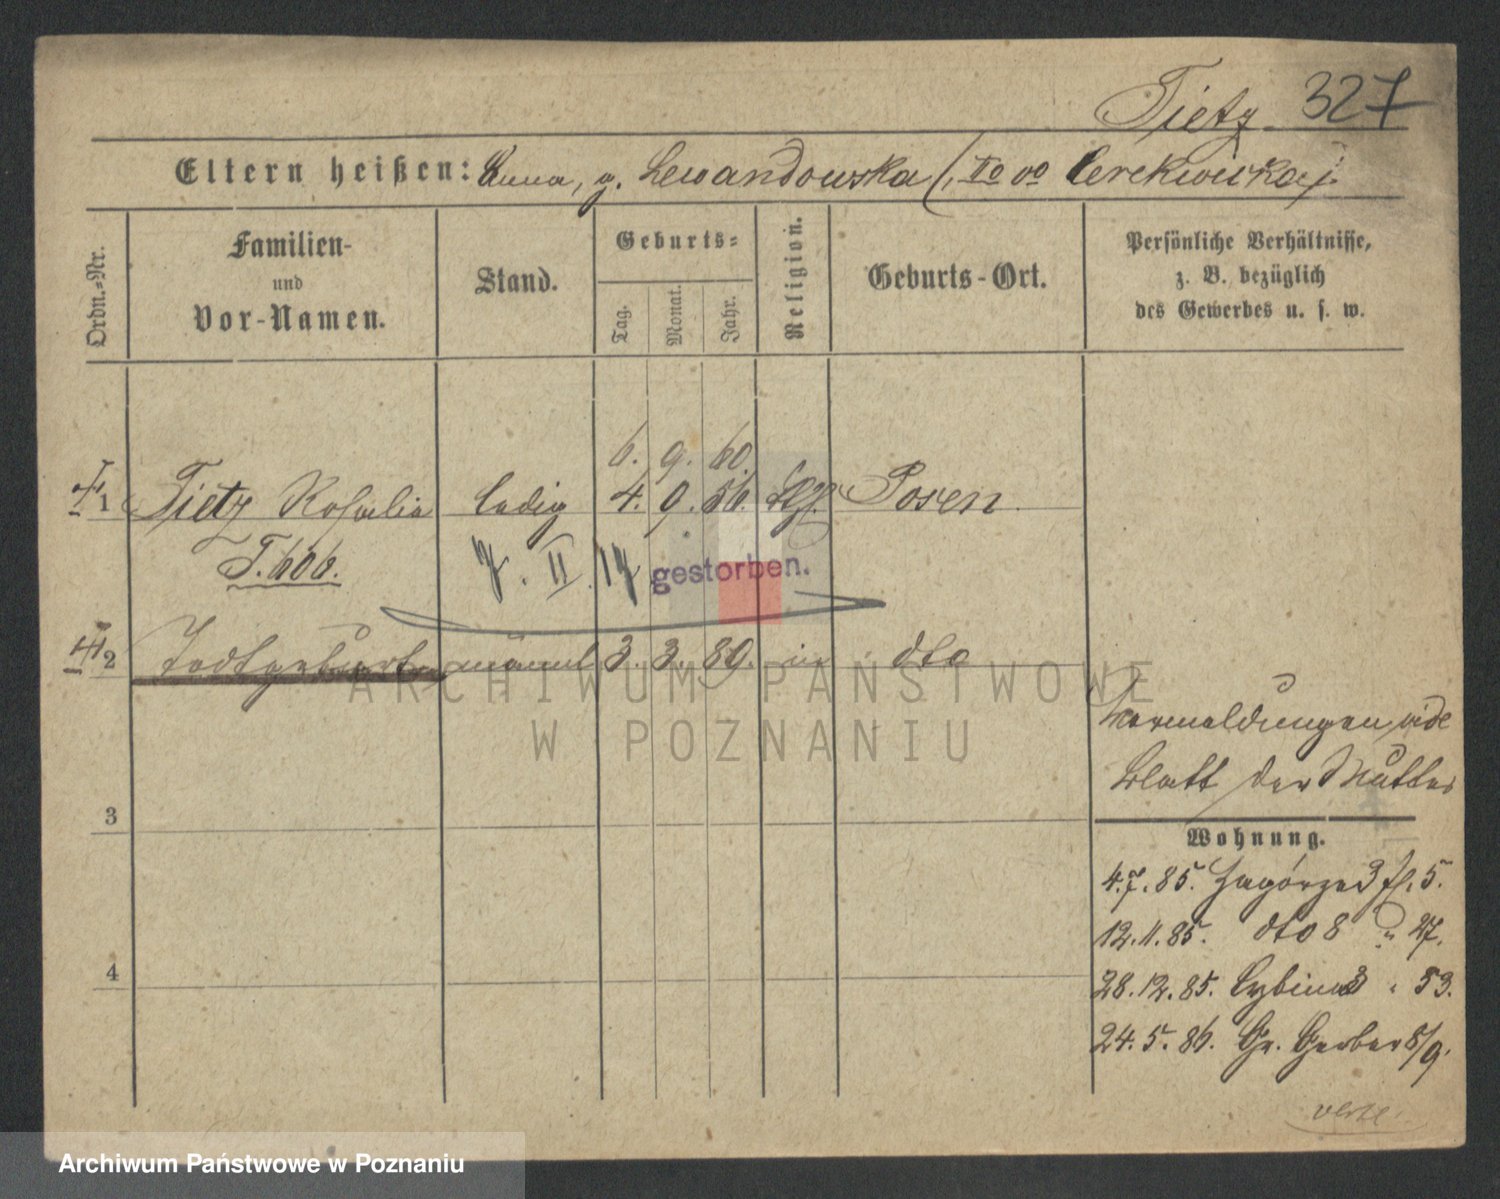 Tietz 327
Eltern heißen: Anna, g. Lewandowska (, IIo vo Cerekwicka).
Ordn.-Nr.
Familien-
und
Vor-Namen.
Stand.
Geburts-
Tag.
Monat.
Jahr.
Religion.
Geburts-Ort.
Persönliche Verhältnisse,
z. B. bezüglich
des Gewerbes u. s. w.
6. 9. 60.
1 Tietz Rosalie ledig 4. 9. 56. Posen
T. 606.
7. II. 17 gestorben.
2 Todtgeburt männl 3. 3. 89. dto
ARCHIWUM PAŃSTWOWE
W POZNANIU
vide
Blatt der Mutter
3
Wohnung.
4.7.85. Zagórze 3 fl. 5.
12.11.85. dto 8 " 27.
4
28.12.85. Cybina 3 " 53.
24.5.86. Gr. Gerber 8/9.
verte
Archiwum Państwowe w Poznaniu